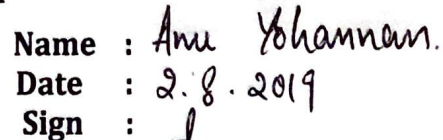 Name : Anu Yohannan.
Date : 2.8.2019
Sign :